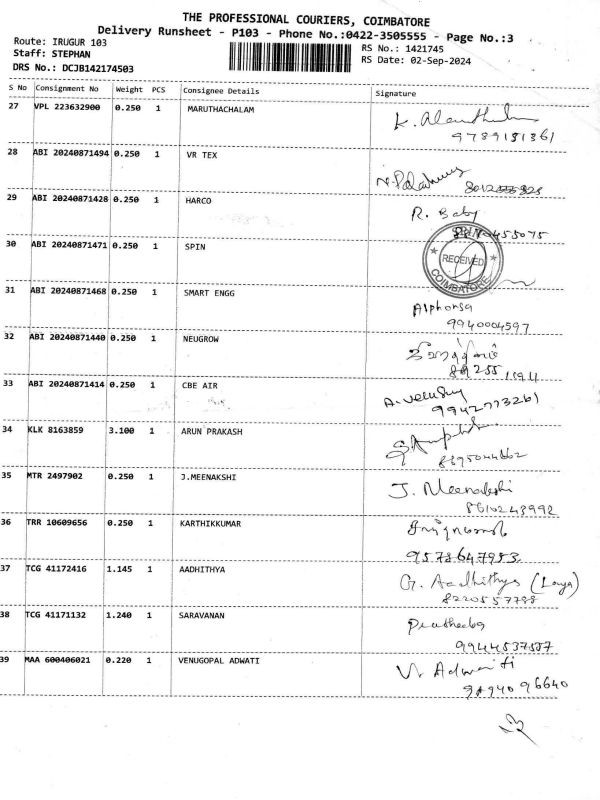 THE PROFESSIONAL COURIERS, COIMBATORE
Delivery Runsheet - P103 - Phone No.:0422-3505555 - Page No.:3
Route: IRUGUR 103
Staff: STEPHAN
DRS No.: DCJB142174503
RS No.: 1421745
RS Date: 02-Sep-2024
S No Consignment No Weight PCS Consignee Details Signature
27 VPL 223632900 0.250 1 MARUTHACHALAM
9789151361
28 ABI 20240871494 0.250 1 VR TEX
29 ABI 20240871428 0.250 1 HARCO R. Baby
30 ABI 20240871471 0.250 1 SPIN
RECEIVED
COIMBATORE
31 ABI 20240871468 0.250 1 SMART ENGG Alphonsa
9940004597
32 ABI 20240871440 0.250 1 NEUGROW
33 ABI 20240871414 0.250 1 CBE AIR
9942773261
34 KLK 8163859 3.100 1 ARUN PRAKASH
35 MTR 2497902 0.250 1 J.MEENAKSHI J. Meenakshi
8610243992
36 TRR 10609656 0.250 1 KARTHIKKUMAR
9578647953
37 TCG 41172416 1.145 1 AADHITHYA G. Aadhithya (Laya)
8220557788
38 TCG 41171132 1.240 1 SARAVANAN Pratheeba
9944537557
39 MAA 600406021 0.220 1 VENUGOPAL ADWATI V. Adwaiti
96640